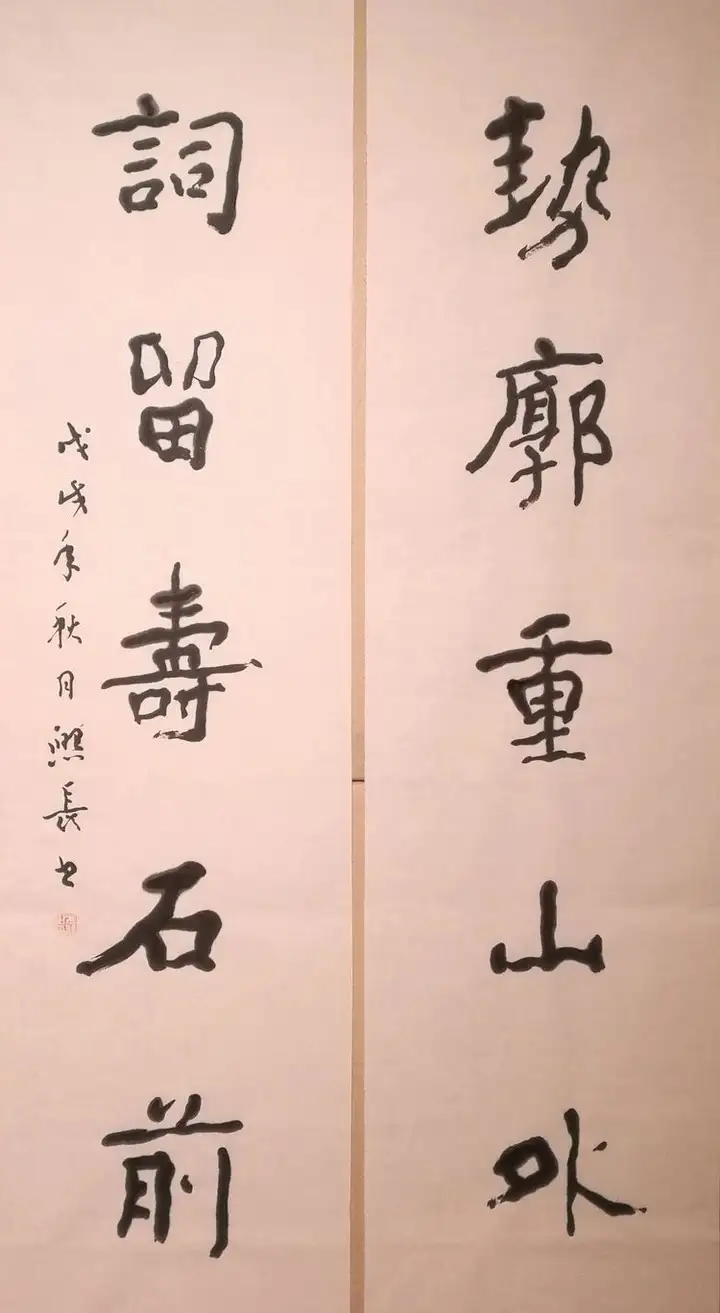 勢廓重山外
詞留壽石前
戊戌年秋月熙長书